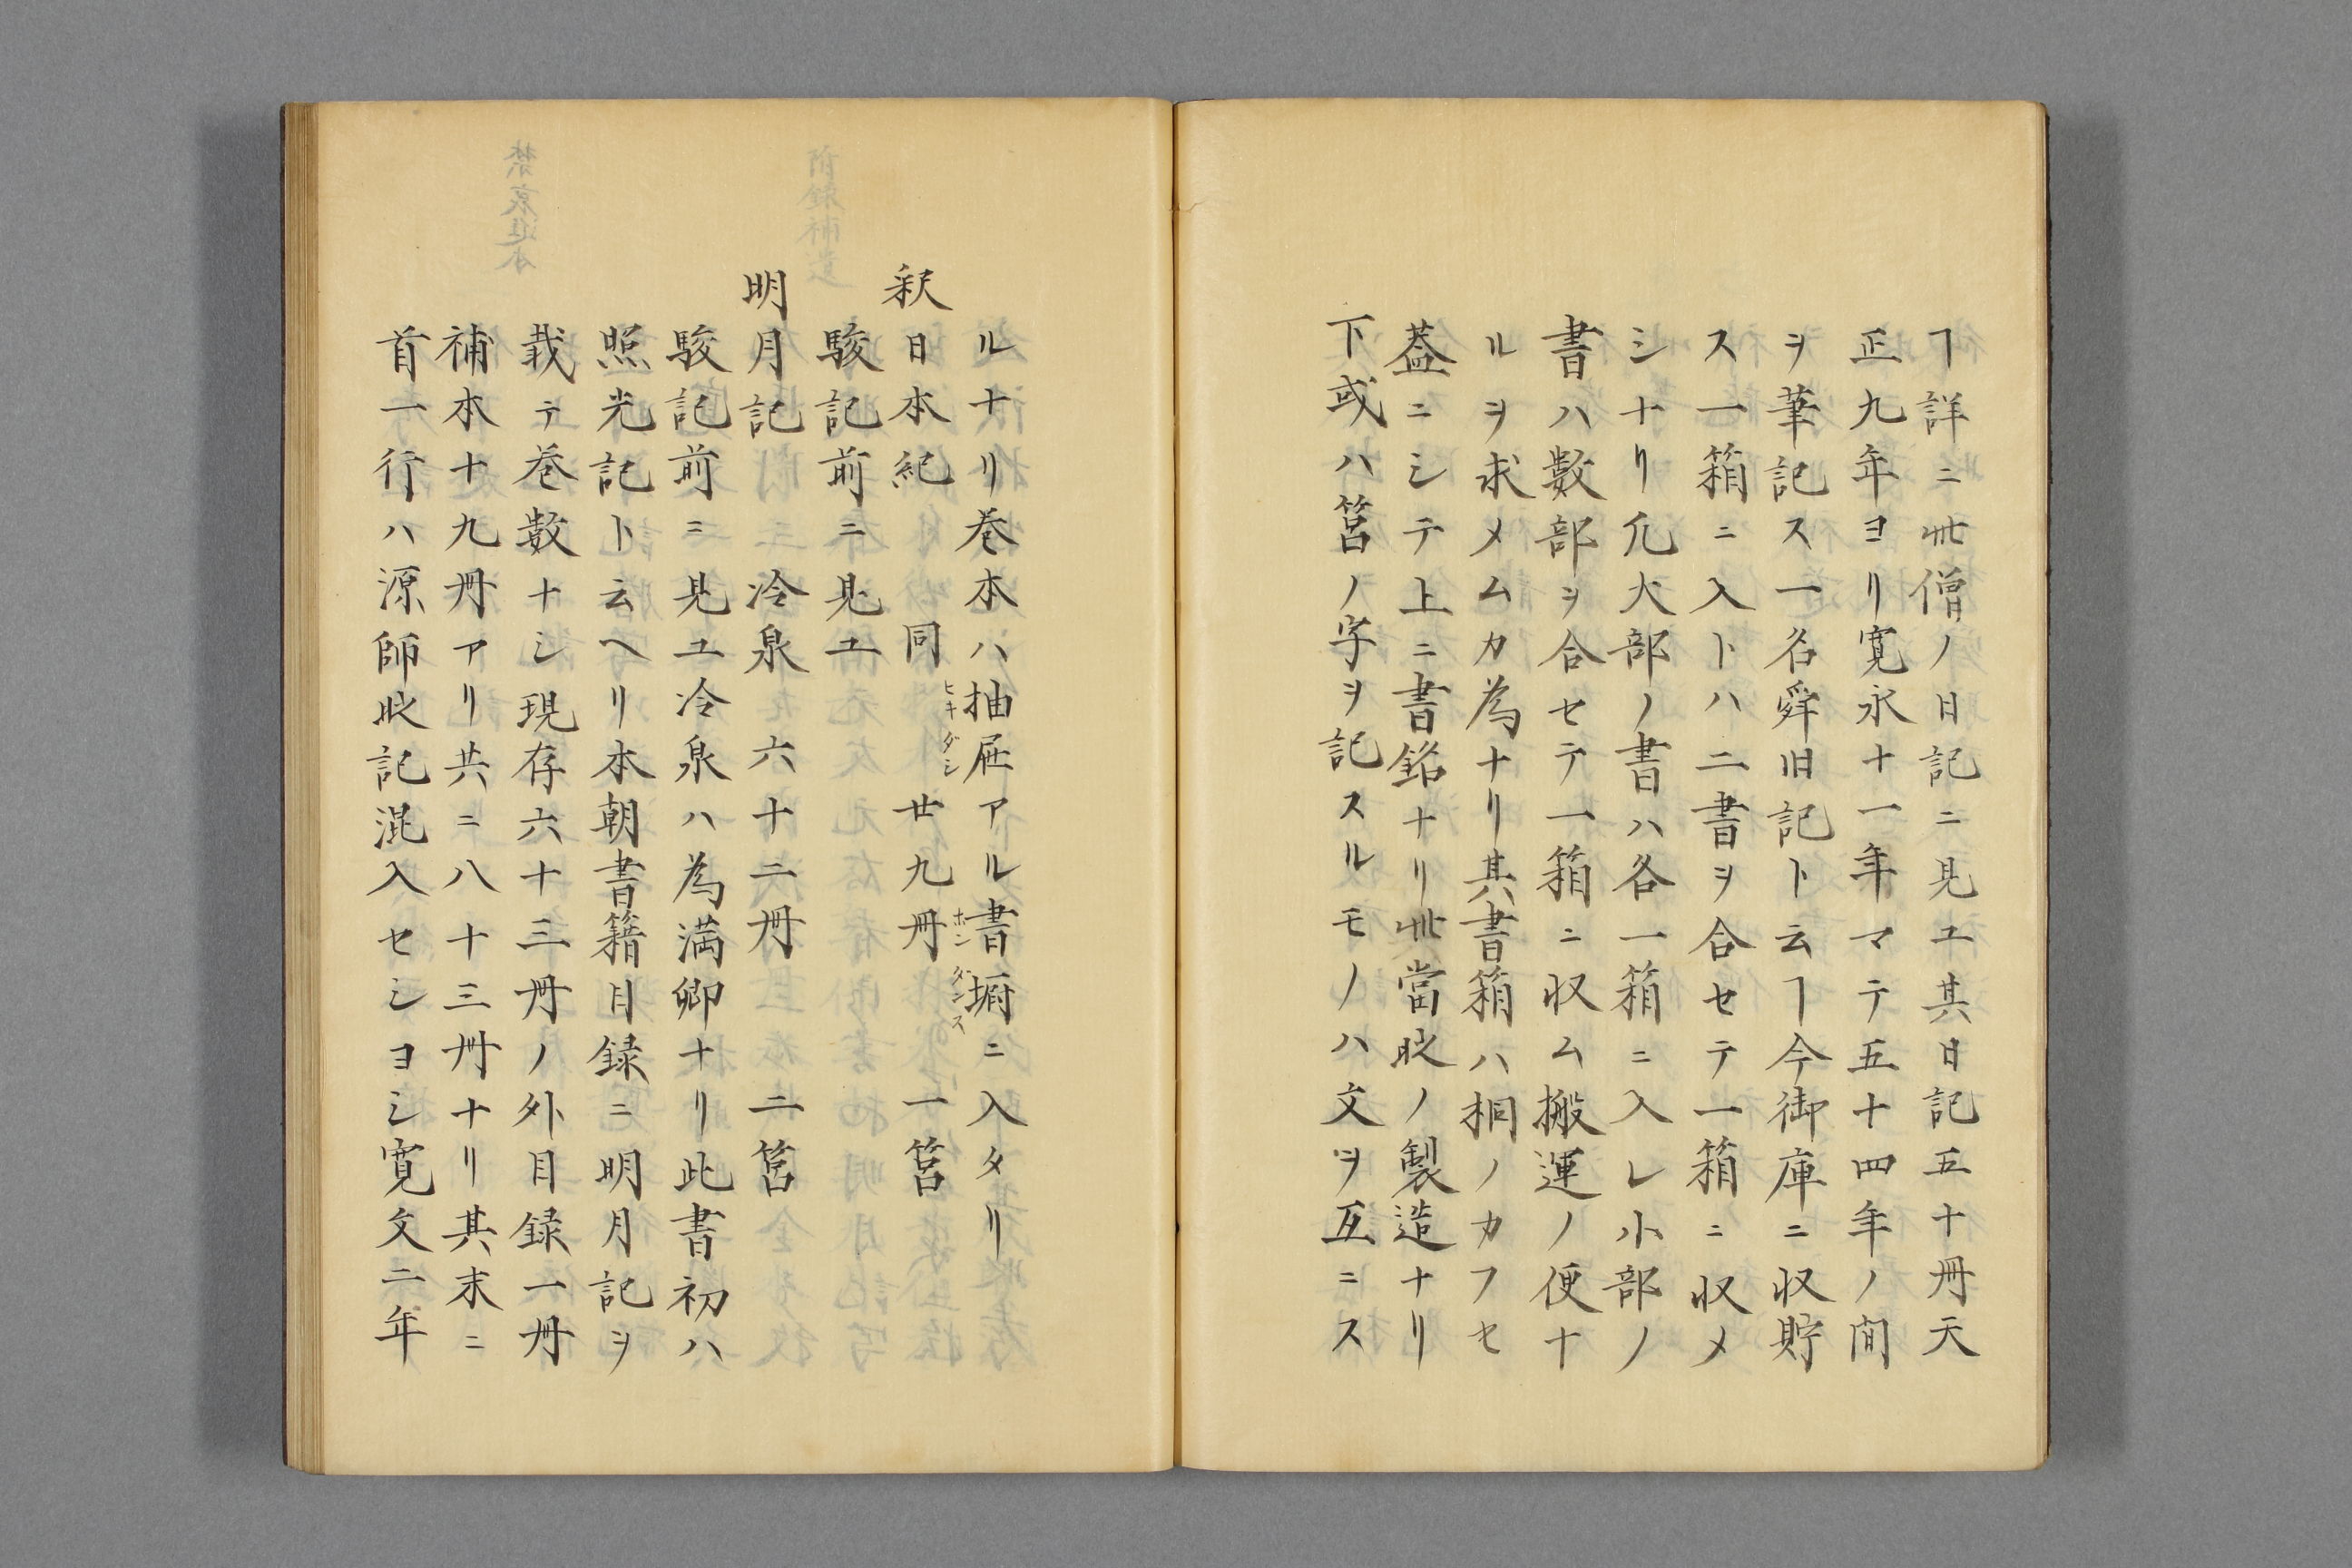 ヿ詳ニ此僧ノ日記ニ見ユ其日記五十冊天
正九年ヨリ寛永十一年マテ五十四年ノ間
ヲ筆記ス一名舜旧記ト云ヿ今御庫ニ収貯
ス一箱ニ入トハ二書ヲ合セテ一箱ニ収メ
シナリ凡大部ノ書ハ各一箱ニ入レ小部ノ
書ハ數部ヲ合セテ一箱ニ収ム搬運ノ便ナ
ルヲ求メムカ為ナリ其書箱ハ桐ノカフセ
葢ニシテ上ニ書銘ナリ此當時ノ製造ナリ
下或ハ筥ノ字ヲ記スルモノハ文ヲ互ニス
ルナリ巻本ハ抽屉アル書㕑ニ入タリ
ヒキダシ
ホンダンス
釈日本紀 同 廿九冊 一筥
駿記前ニ見ユ
明月記 冷泉 六十二冊 二筥
駿記前ニ見ユ冷泉ハ為満卿ナリ此書初ハ
照光記ト云ヘリ本朝書籍目録ニ明月記ヲ
載テ巻數ナシ現存六十三冊ノ外目録一冊
補本十九冊アリ共ニ八十三冊ナリ其末ニ
首一行ハ源師時記混入セシヨシ寛文二年